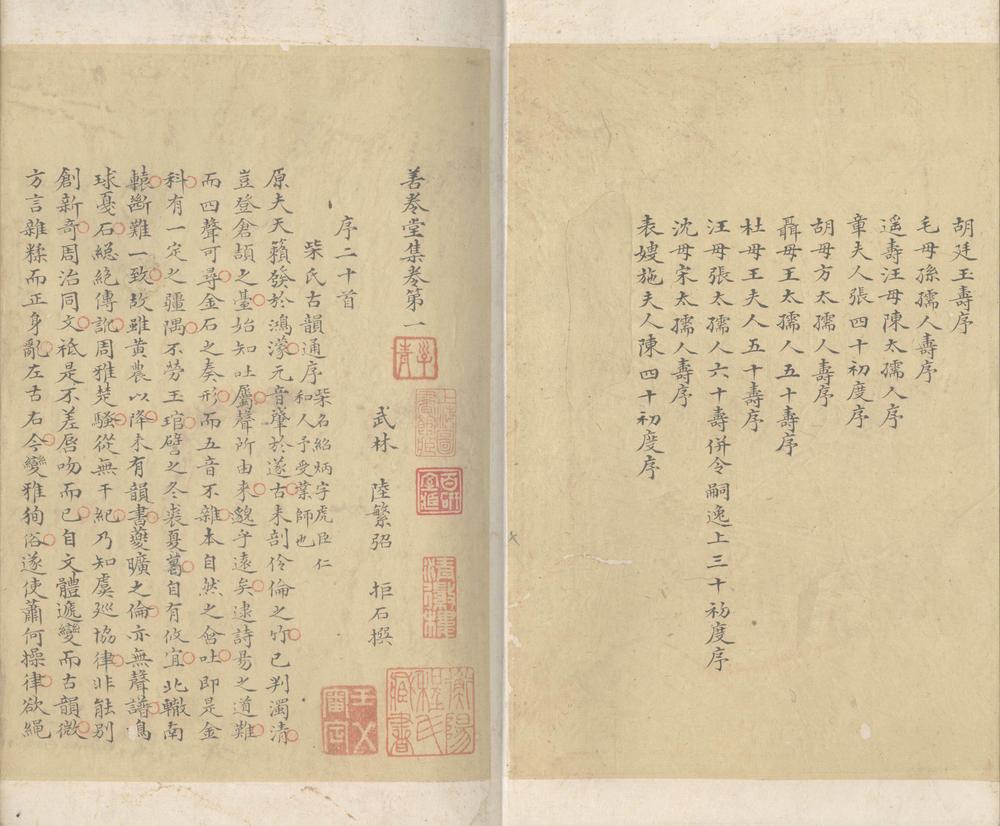 胡廷玉壽序
毛母孫孺人壽序
遥壽汪母陳太孺人序
章夫人張四十初度序
胡母方太孺人壽序
聶母王太孺人五十壽序
杜母王夫人五十壽序
汪母張太孺人六十壽併令嗣逸上三十初度序
沈母宋太孺人壽序
表嫂施夫人陳四十初度序
善卷堂集卷第一
武林 陸繁弨 拒石撰
序二十首
柴氏古韻通序 柴名紹炳字虎臣仁和人予受業師也
原夫天籟發於鴻濛元音肇於遂古未剖伶倫之竹已判濁清
豈登倉頡之臺始知吐屬聲所由來邈乎遠矣逮詩昜之道難
而四聲可尋金石之奏形而五音不雜本自然之會吐即是金
科有一定之疆隅不勞玉琯譬之冬裘夏葛自有攸宜北轍南
轅斷難一致故雖黃農以降未有韻書夔曠之倫亦無聲譜鳥
球戞石縂絶傳訛周雅楚騷從無干紀乃知虞廵協律非能别
創新奇周治同文祗是不差唇吻而已自文體遞變而古韻微
方言雜糅而正身亂左古右今變雅徇俗遂使蕭何操律欲繩